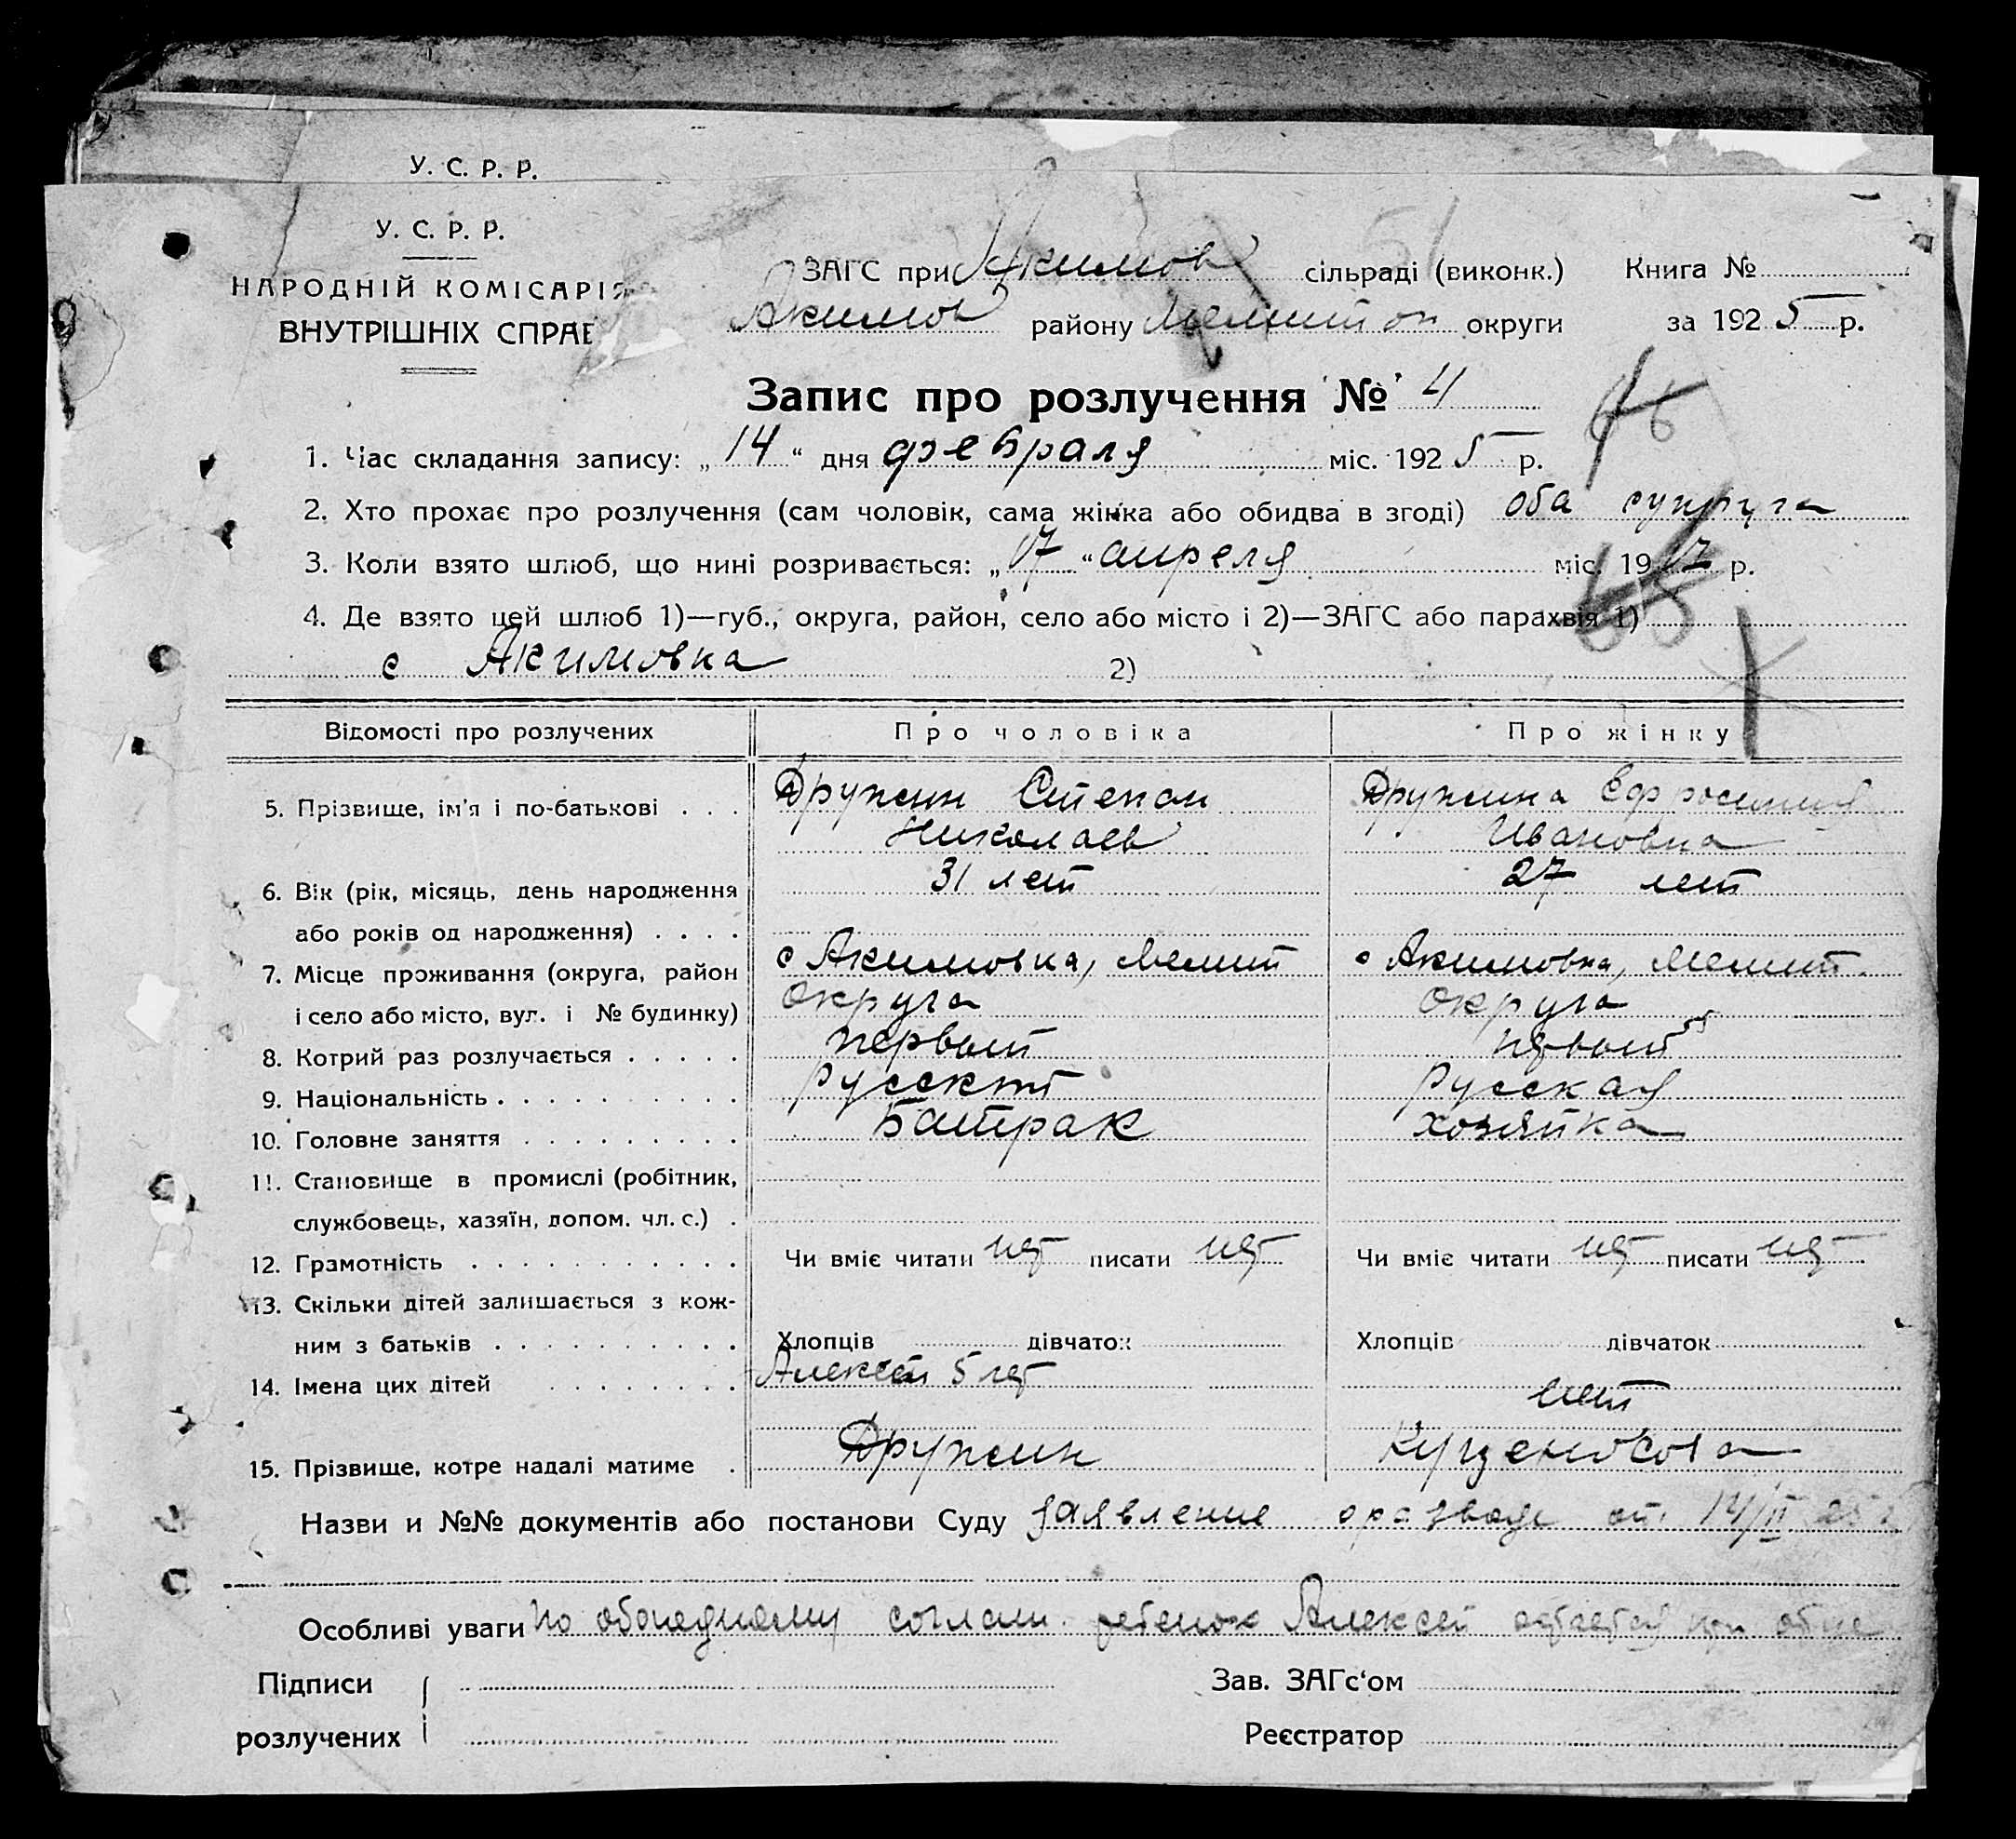 У. С. Р. Р.
У. С. Р. Р.
НАРОДНІЙ КОМІСАРІЯ
ВНУТРІШНІХ СПРАВ
ЗАГС при Акимов сільраді (виконк.) Книга №
Акимов району Мелитоп округи за 1925 р.
Запис про розлучення № 4
1. Час складання запису: „14“ дня февраля міс. 1925 р.
2. Хто прохає про розлучення (сам чоловік, сама жінка або обидва в згоді) оба супруга
3. Коли взято шлюб, що нині розривається: „17“ апреля міс. 1917 р.
4. Де взято цей шлюб 1)—губ., округа, район, село або місто і 2)—ЗАГС або парахвія 1)
с Акимовка 2)
Відомості про розлучених Про чоловіка Про жінку
5. Прізвище, ім'я і по-батькові . . . Дружин Степан Дружина Ефросиния
Николаев Ивановна
6. Вік (рік, місяць, день народження 31 лет 27 лет
або років од народження) . . . .
7. Місце проживання (округа, район с Акимовка, Мелит с Акимовка, Мелит.
і село або місто, вул. і № будинку) округа округа
8. Котрий раз розлучається . . . . . первый первый
9. Національність . . . . . . . . . . русский русская
10. Головне заняття . . . . . . . . . Батрак хозяйка
11. Становище в промислі (робітник,
службовець, хазяїн, допом. чл. с.) .
12. Грамотність . . . . . . . . . . . Чи вміє читати нет писати нет Чи вміє читати нет писати нет
13. Скільки дітей залишається з кож-
ним з батьків . . . . . . . . . . Хлопців дівчаток Хлопців дівчаток
14. Імена цих дітей . . . . . . . Алексей 5 лет
нет
15. Прізвище, котре надалі матиме . Дружин
Назви и №№ документів або постанови Суду заявление о разводе от 14/II 25
Особливі уваги По обоюдному соглаш. ребенок Алексей остается при отце
Підписи Зав. ЗАГс'ом
розлучених Реєстратор